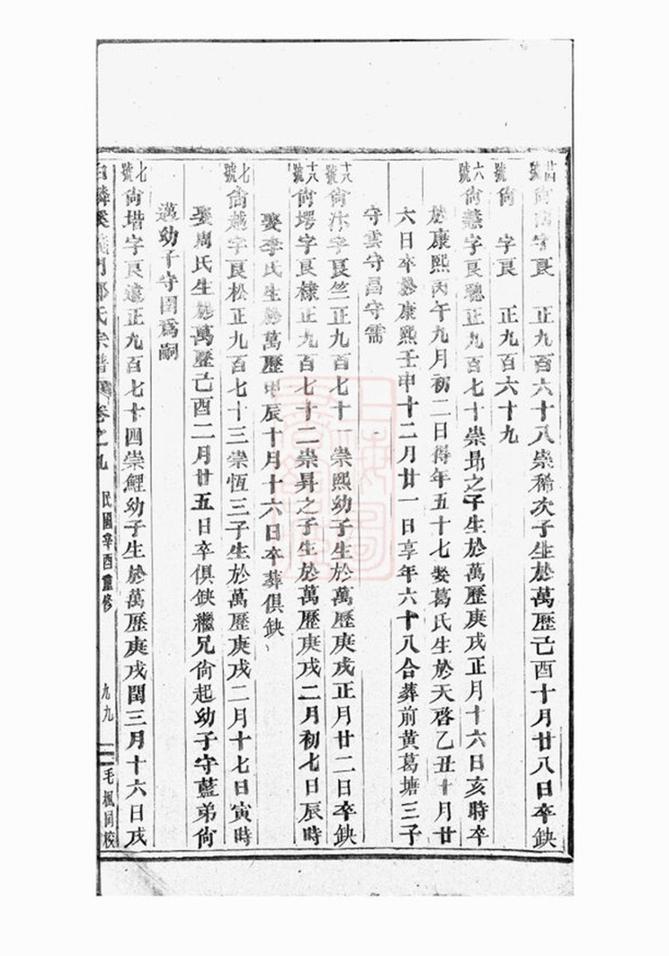 廿四號 尙 字良 正九百六十八崇稀次子生於萬歷己酉十月廿八日卒缺
號 尙 字良 正九百六十九
六號 尙慧字良聽正九百七十崇昻之子生於萬歷庚戌正月十六日亥時卒
於康熙丙午九月初二日得年五十七娶葛氏生於天啓乙丑十月廿
六日卒於康熙壬申十二月廿一日享年六十八合葬前黄葛塘三子
守雲守昌守霈
十八號 尙 字良竺正九百七十一崇熙幼子生於萬歷庚戌正月廿二日卒缺
十八號 尙 字良棣正九百七十二崇昇之子生於萬歷庚戌二月初七日辰時
娶李氏生於萬歷甲辰十月十六日卒葬俱缺
七號 尙越字良松正九百七十三崇恆三子生於萬歷庚戌二月十七日寅時
娶周氏生於萬歷己酉二月廿五日卒俱缺繼兄尙起幼子守藍弟尙
邁幼子守圉爲嗣
七號 尙堦字良遠正九百七十四崇鯉幼子生於萬歷庚戌閏三月十六日戌
白麟溪義門鄭氏宗譜 卷之九 民國辛酉重修 九九 毛楓同校